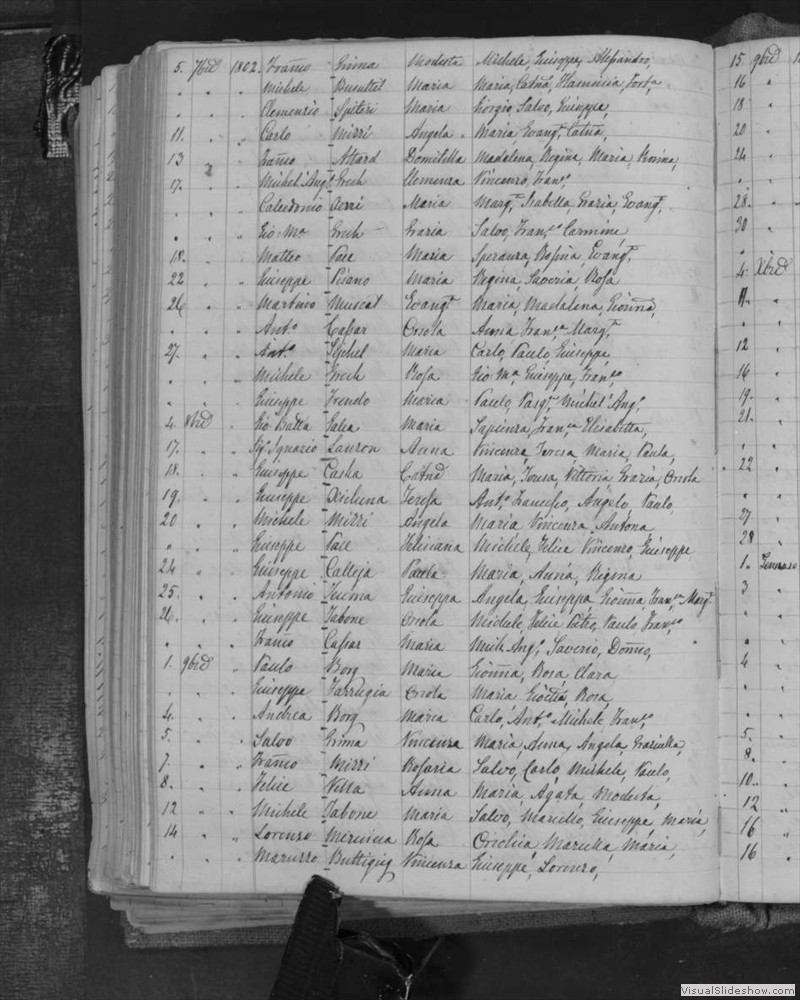 5. 7brd 1802. Franco Grima Modesta Michele, Giuseppe, Alessandro,
" " " Michele Busuttil Maria Maria, Catna, Flaminia, Fort.a
" " " Clemenzio Spiteri Maria Giorgio Salvo, Giuseppa,
11. " " Carlo Mizzi Angela Maria Evang.a Catna,
13 " " Franco Attard Domitilla Madalena, Regina, Maria, Rosina,
17. " " Michel'Ang.o Grech Clemenza Vincenzo, Fran.co
" " " Calcidonio Azzi Maria Marg.a Isabella, Grazia, Evang.a
" " " Gio Ma Grech Grazia Salvo, Fran.co Carmine,
18. " " Matteo Pace Maria Speranza, Rosina, Evang.a
22 " " Giuseppe Pisano Maria Regina, Saveria, Rosa
26 " " Martino Muscat Evang.a Maria, Madalena, Gionna,
" " " Ant.o Cassar Orsola Anna, Fran.ca Marg.a
27. " " Ant.o Schel Maria Carlo, Paulo, Giuseppe,
" " " Michele Grech Rosa Gio Ma, Giuseppe, Fran.co
" " " Giuseppe Zrendo Maria Paulo, Pasq.e Michel'Ang.o
4. 8brd " Gio Batta Galea Maria Sapienza, Fran.ca Elisabetta,
17. " " Sig. Ignazio Lauron Anna Vincenza, Teresa, Maria, Paula,
18. " " Giuseppe Casha Catna Maria, Teresa, Vittoria, Grazia, Orsola
19. " " Giuseppe Xicluna Teresa Ant.o Francesco, Angelo, Paulo,
20 " " Michele Mizzi Angela Maria Vincenza, Antona
" " " Giuseppe Pace Feliciana Michele, Felice Vincenzo, Giuseppe
24 " " Giuseppe Calleja Paula Maria, Anna, Regina
25. " " Antonio Giuseppa Angela, Giuseppa, Gionna, Fran.ca Marg.a
26. " " Giuseppe Tabone Orsola Michele, Felice Pietro, Paulo, Fran.co
" " " Franco Cassar Maria Mich Ang.o, Saverio, Domco,
1. 9brd " Paulo Borg Maria Gionna, Rosa, Clara
" " " Giuseppe Farrugia Orsola Maria Rosa,
4. " " Andrea Borg Maria Carlo, Ant.o Michele, Fran.co
5. " " Salvo Grima Vincenza Maria, Anna, Angela, Graziulla,
7. " " Franco Mizzi Rosaria Salvo, Carlo, Michele, Paulo,
8. " " Felice Villa Anna Maria, Agata, Modesta,
12 " " Michele Tabone Maria Salvo, Marcello, Giuseppe, Maria,
14 " " Lorenzo Mercieca Rosa Maria,
" " " Maruzzo Buttigieg Vincenza Giuseppe, Lorenzo,
15 9brd
16 "
18 "
20 "
24 "
" "
28. "
30 "
" "
4. Xbrd
11. "
" "
12 "
16 "
19. "
21. "
" "
22 "
" "
27 "
28 "
1. Gennaro
3 "
" "
" "
4 "
" "
" "
5. "
8. "
10. "
12 "
16 "
16 "
VisualSlideshow.com